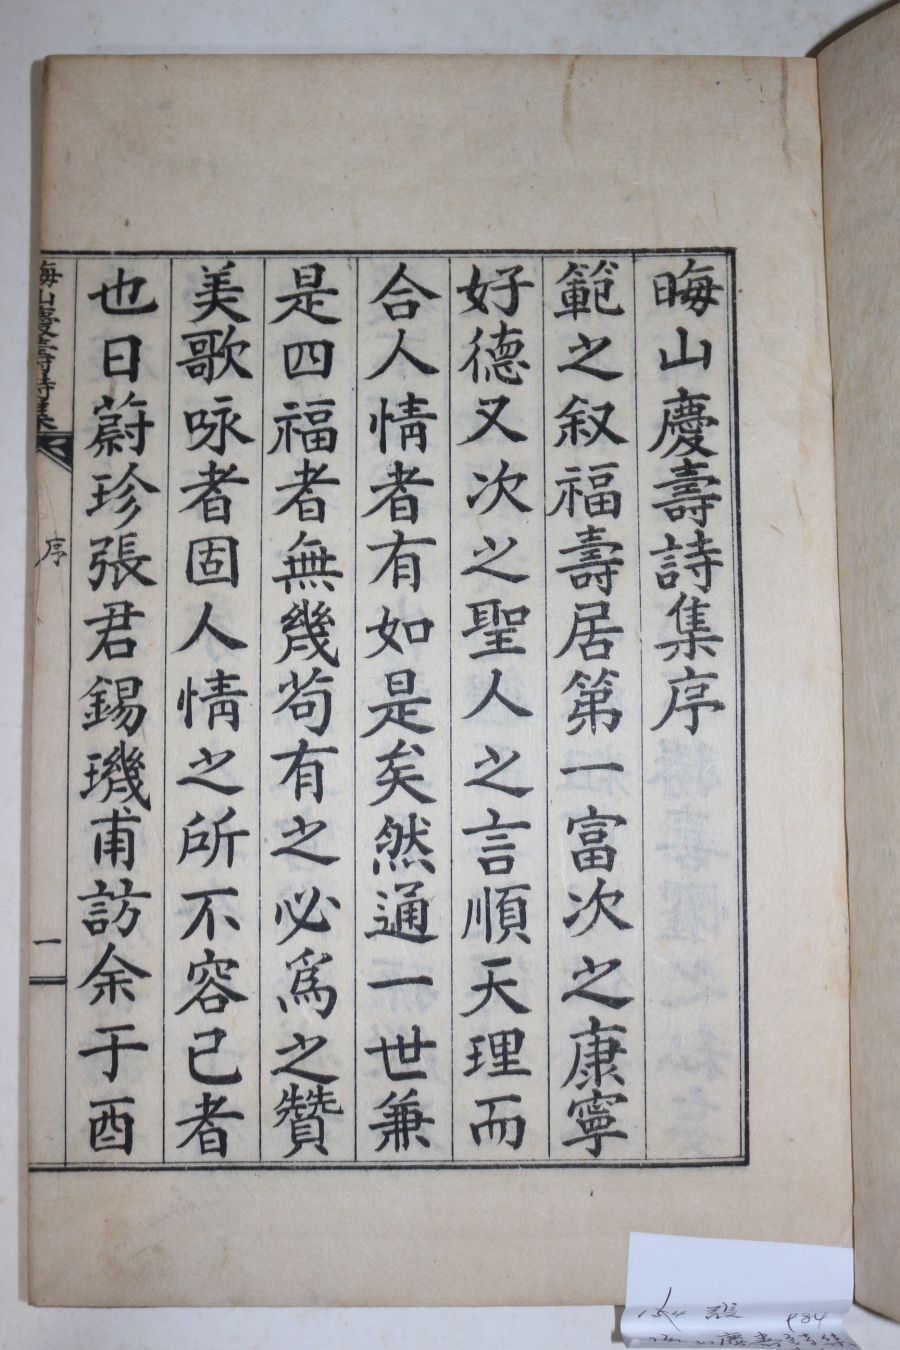 晦山慶壽詩集序
範之叙福壽居第一富次之康寧
好德又次之聖人之言順天理而
合人情者有如是矣然通一世兼
是四福者無幾苟有之必爲之贊
美歌咏者固人情之所不容已者
也日蔚珍張君錫璣甫訪余于酉
晦山慶壽詩集
序
一
張
984
慶壽詩集